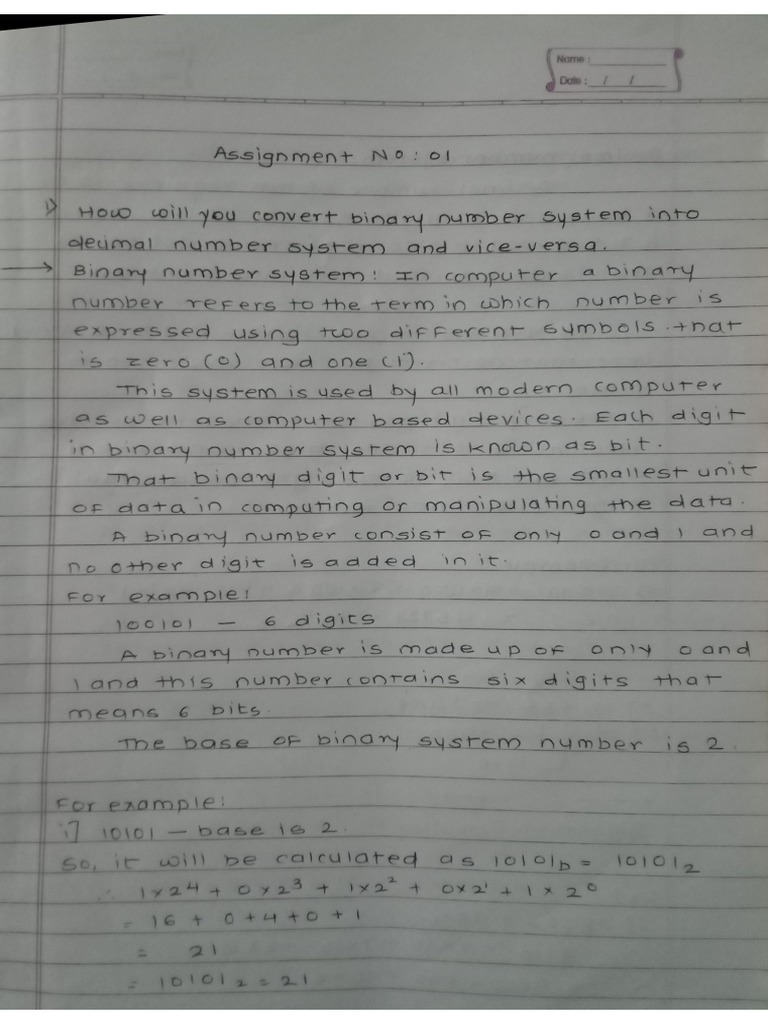 Name :
Date : / /
Assignment No: 01
1) How will you convert binary number system into
decimal number system and vice-versa.
→ Binary number system: In computer a binary
number refers to the term in which number is
expressed using two different symbols. that
is zero (0) and one (1).
This system is used by all modern computer
as well as computer based devices. Each digit
in binary number system is known as bit.
That binary digit or bit is the smallest unit
of data in computing or manipulating the data.
A binary number consist of only 0 and 1 and
no other digit is added in it.
For example:
100101 — 6 digits
A binary number is made up of only 0 and
1 and this number contains six digits that
means 6 bits.
The base of binary system number is 2.
For example:
i] 10101 — base is 2.
So, it will be calculated as 10101b = 10101₂
∴ 1×2⁴ + 0×2³ + 1×2² + 0×2¹ + 1×2⁰
= 16 + 0 + 4 + 0 + 1
= 21
= 10101₂ = 21